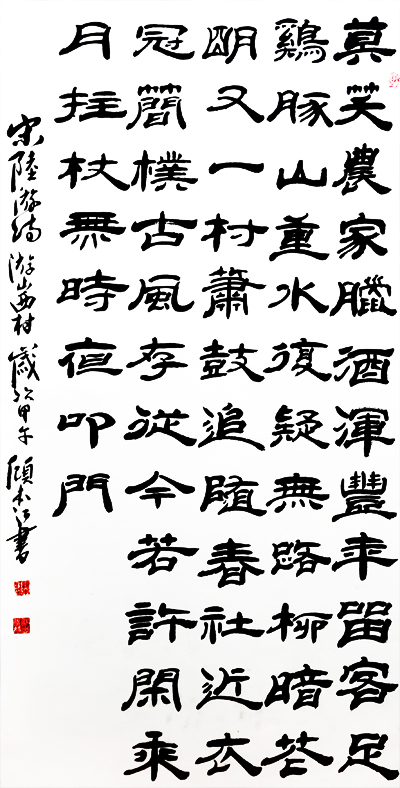 莫笑農家臘酒渾豐年留客足
鷄豚山重水復疑無路柳暗花
明又一村蕭鼓追隨春社近衣
冠簡樸古風存從今若許閑乘
月拄杖無時夜叩門
宋陸游詩游山西村歲次甲午顧本江書